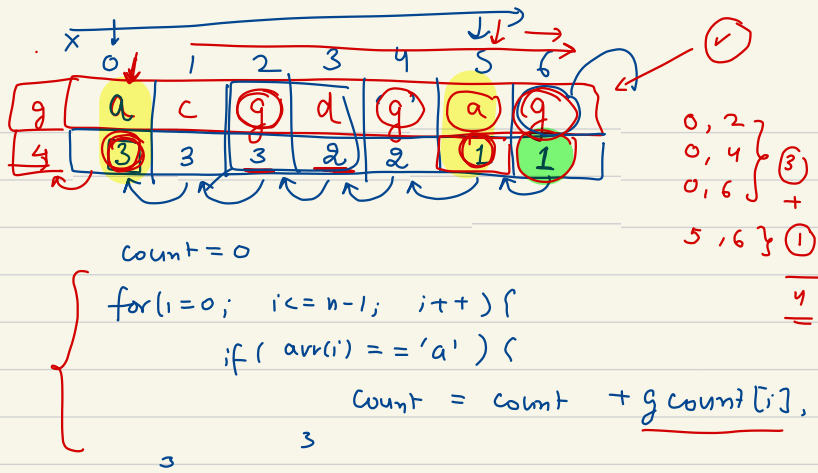 x 0 1 2 3 4 5 6
g a c g d g a g
4 3 3 3 2 2 1 1
0, 2
0, 4
0, 6 } 3
+
5, 6 } 1
4
count = 0
for(i=0; i<=n-1; i++) {
if( arr(i) == 'a' ) {
count = count + gcount[i],
}
}